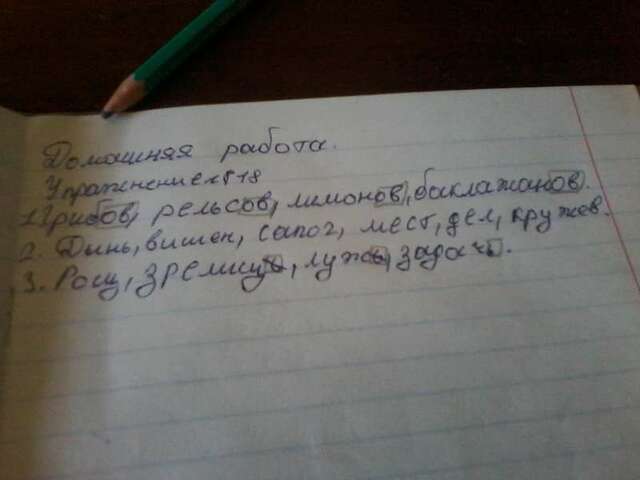 Домашняя работа.
Упражнение №518
1. Грибов, рельсов, лимонов, баклажанов.
2. Дынь, вишен, сапог, мест, дел, кружев.
3. Рощ, лужь, задачь.